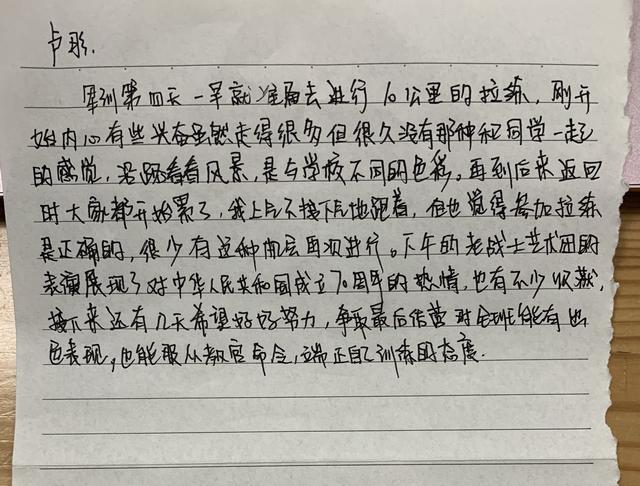 卢彤.
军训第四天一早就准备去进行10公里的拉练,刚开
始内心有些兴奋虽然走得很多但很久没有那种和同学一起
的感觉,沿路看看风景,是与学校不同的色彩。再到后来返回
时大家都开始累了,我上气不接下气地跟着,但也觉得参加拉练
是正确的,很少有这种机会再次进行。下午的老战士艺术团的
表演展现了对中华人民共和国成立70周年的热情,也有不少收获,
接下来还有几天希望好好努力,争取最后结营时全班能有出
色表现,也能服从教官命令,端正自己训练的态度.